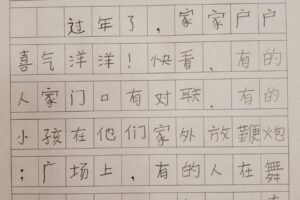 过年了,家家户户
喜气洋洋!快看,有的
人家门口有对联,有的
小孩在他们家外放鞭炮
;广场上,有的人在舞